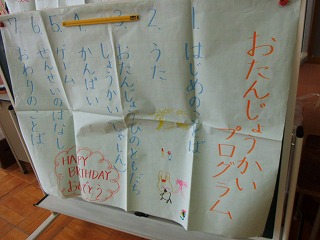 おたんじょうかい
プログラム
1. はじめのことば
2. うた
3. おたんじょうびのともだち
しょうかい
4. かんぱい
5. ゲーム
6. せんせいのはなし
7. おわりのことば
HAPPY
BIRTHDAY
おめでとう